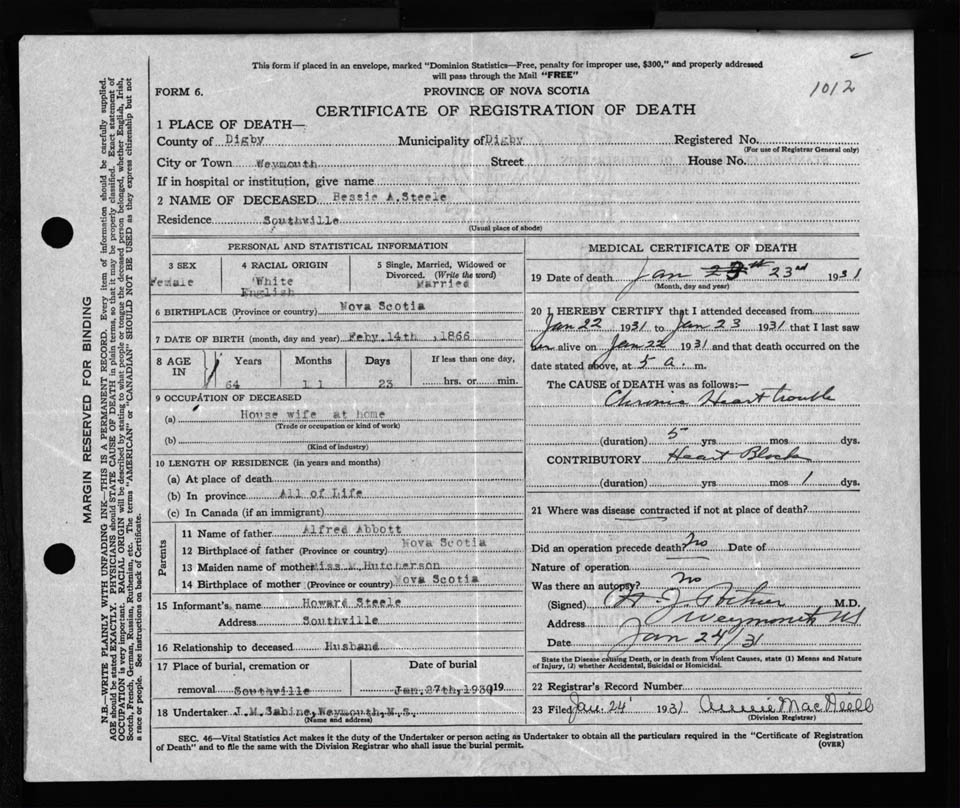 This form if placed in an envelope, marked "Dominion Statistics—Free, penalty for improper use, $300," and properly addressed
will pass through the Mail "FREE"
1012
FORM 6.
PROVINCE OF NOVA SCOTIA
CERTIFICATE OF REGISTRATION OF DEATH
1 PLACE OF DEATH—
County of Digby Municipality of Digby Registered No.
(For use of Registrar General only)
City or Town Weymouth Street House No.
If in hospital or institution, give name
2 NAME OF DECEASED Bessie A.Steele
Residence Southville
(Usual place of abode)
PERSONAL AND STATISTICAL INFORMATION
3 SEX 4 RACIAL ORIGIN 5 Single, Married, Widowed or
Divorced. (Write the word)
Female White Married
English
6 BIRTHPLACE (Province or country) Nova Scotia
7 DATE OF BIRTH (month, day and year) Feby.14th ,1866
8 AGE Years Months Days If less than one day,
IN 64 11 23 hrs. or min.
9 OCCUPATION OF DECEASED
(a) House wife at home
(Trade or occupation or kind of work)
(b)
(Kind of industry)
10 LENGTH OF RESIDENCE (in years and months)
(a) At place of death
(b) In province All of Life
(c) In Canada (if an immigrant)
Parents
11 Name of father Alfred Abbott
12 Birthplace of father (Province or country) Nova Scotia
13 Maiden name of mother Miss M.Hutcherson
14 Birthplace of mother (Province or country) Nova Scotia
15 Informant's name Howard Steele
Address Southville
16 Relationship to deceased Husband
17 Place of burial, cremation or Date of burial
removal Southville Jan.27th,1930 19
18 Undertaker J.M.Sabine,Weymouth,N.S.,
(Name and address)
MEDICAL CERTIFICATE OF DEATH
19 Date of death Jan 23rd 1931
(Month, day and year)
20 I HEREBY CERTIFY that I attended deceased from
Jan 22 1931 to Jan 23 1931 that I last saw
her alive on Jan 22 1931 and that death occurred on the
date stated above, at 5 a. m.
The CAUSE of DEATH was as follows:—
Chronic Heart trouble
(duration) 5 yrs mos dys.
CONTRIBUTORY Heart Block
(duration) yrs mos 1 dys.
21 Where was disease contracted if not at place of death?
Did an operation precede death? no Date of
Nature of operation
Was there an autopsy? no
(Signed) M.D.
Address Weymouth NS
Date Jan 24/31
State the Disease causing Death, or in death from Violent Causes, state (1) Means and Nature
of Injury, (2) whether Accidental, Suicidal or Homicidal.
22 Registrar's Record Number
23 Filed Jan. 24 1931 Annie MacNeill
(Division Registrar)
SEC. 46—Vital Statistics Act makes it the duty of the Undertaker or person acting as Undertaker to obtain all the particulars required in the "Certificate of Registration
of Death" and to file the same with the Division Registrar who shall issue the burial permit.
(OVER)
MARGIN RESERVED FOR BINDING
N.B.—WRITE PLAINLY WITH UNFADING INK—THIS IS A PERMANENT RECORD. Every item of information should be carefully supplied.
AGE should be stated EXACTLY. PHYSICIANS should STATE CAUSE OF DEATH in plain terms, so that it may be properly classified. Exact statement of
OCCUPATION is very important. RACIAL ORIGIN will be described by stating to what people or tongue the deceased person belonged, whether English, Irish,
Scotch, French, German, Russian, Ruthenian, etc. The terms "AMERICAN" or "CANADIAN" SHOULD NOT BE USED as they express citizenship but not
a race or people. See instructions on back of Certificate.